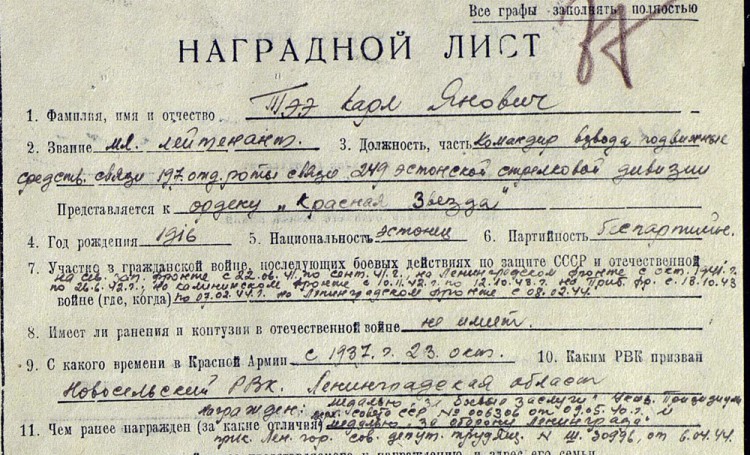 Все графы заполнять полностью
НАГРАДНОЙ ЛИСТ
1. Фамилия, имя и отчество Тээ Карл Янович
2. Звание мл. лейтенант. 3. Должность, часть Командир взвода подвижных
средств связи 197 отд. роты связи 249 эстонской стрелковой дивизии
Представляется к ордену „Красная Звезда"
4. Год рождения 1916 5. Национальность эстонец 6. Партийность беспартийн.
7. Участие в гражданской войне, последующих боевых действиях по защите СССР и отечественной
на сев. зап. фронте с 22.06.41 по сент. 41 г., на Ленинградском фронте с окт. 1941 г.
по 26.6.42 г., на калининском фронте с 10.11.42 г. по 12.10.43 г. на Приб. фр. с 18.10.43
войне (где, когда) по 07.02.44 г. на Ленинградском фронте с 08.02.44.
8. Имеет ли ранения и контузии в отечественной войне не имеет.
9. С какого времени в Красной Армии с 1937 г. 23 окт. 10. Каким РВК призван
Новосельский РВК. Ленинградская област
награжден: медалью „За боевые заслуги" Указ. Президиума
верх. совета ССР № 006306 от 09.05.40 г. и
11. Чем ранее награжден (за какие отличия) медалью „За оборону Ленинграда"
прик. Лен. гор. сов. депут. трудящ. N Ш. 30996, от 6.04.44.